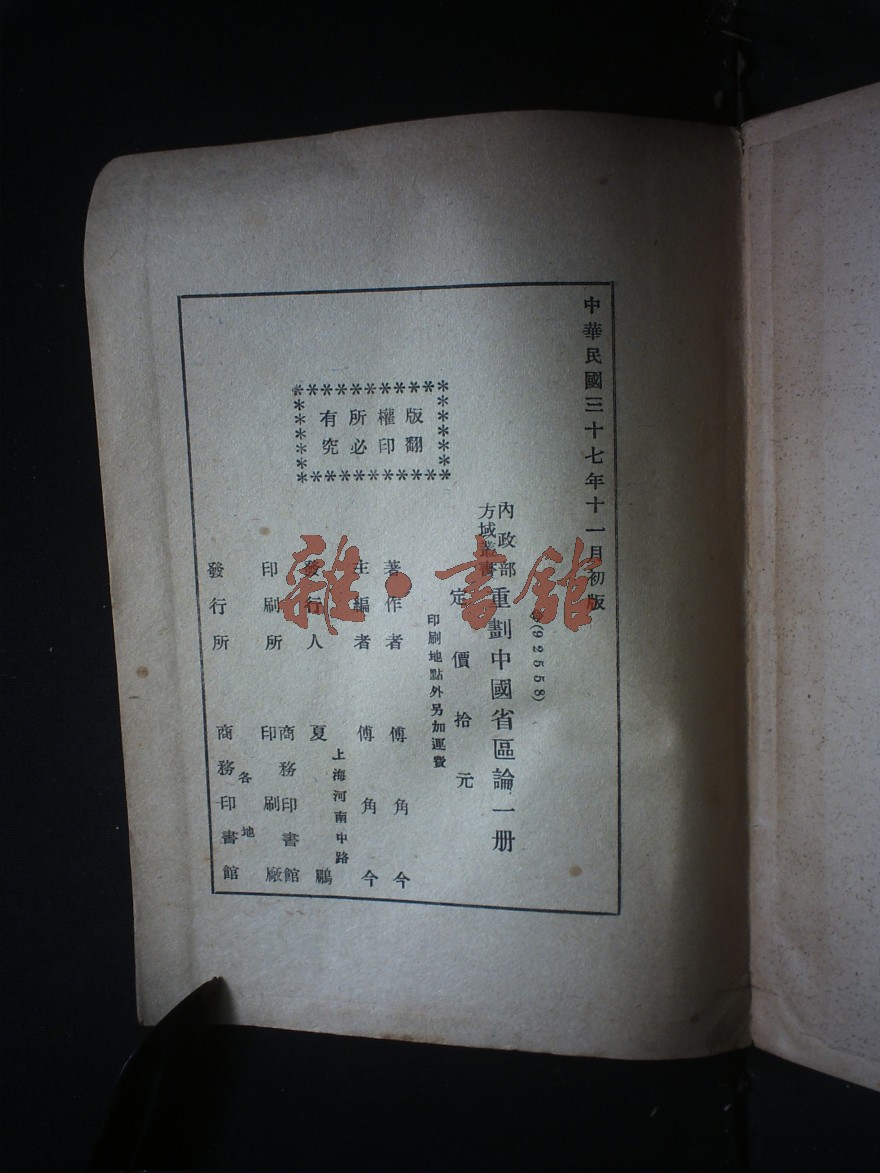 中華民國三十七年十一月初版
(92558)
內政部
方域叢書
重劃中國省區論一册
定價拾元
印刷地點外另加運費
版權所有
翻印必究
著作者 傅角今
主編者 傅角今
上海河南中路
發行人 夏鵬
印刷所 商務印書館
印刷廠
發行所 各地
商務印書館
雜·書館